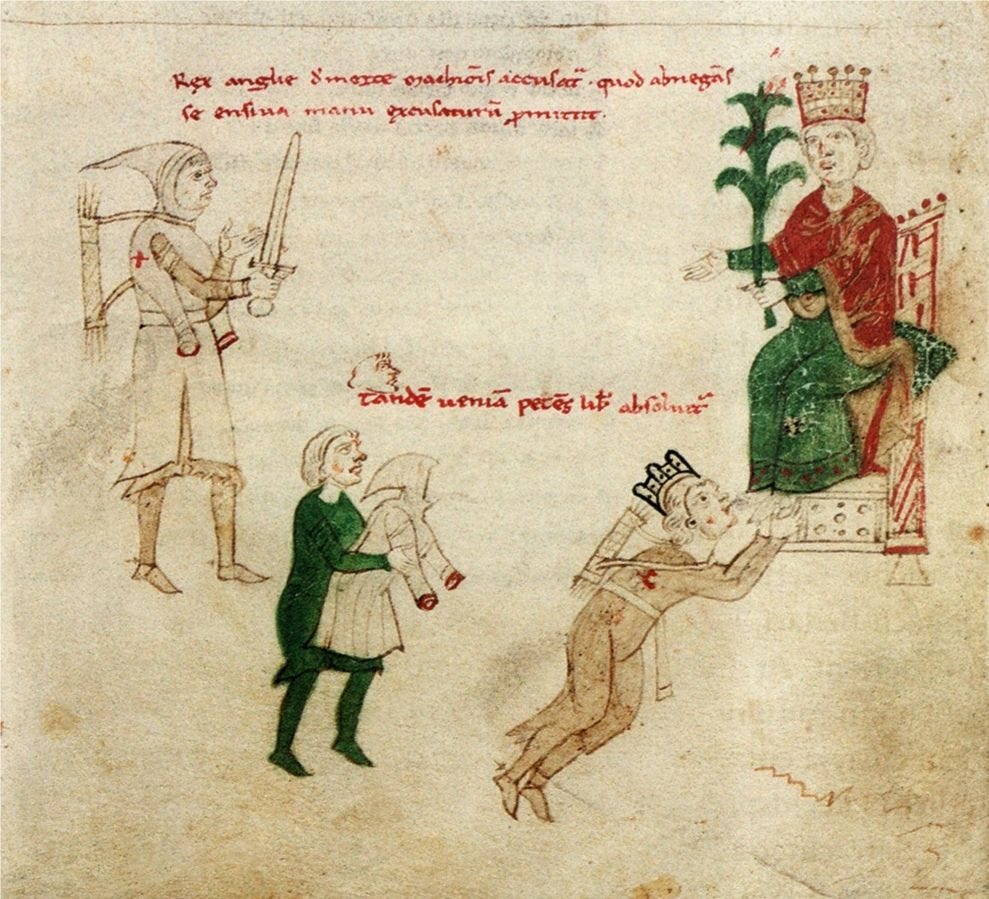 Rex anglie d̄ morte marchiōis accusat᷑ . quod abnegās
se ensiua manu excusaturū ꝓmittit .
tandē ueniā petēs lib̄ absoluit᷑